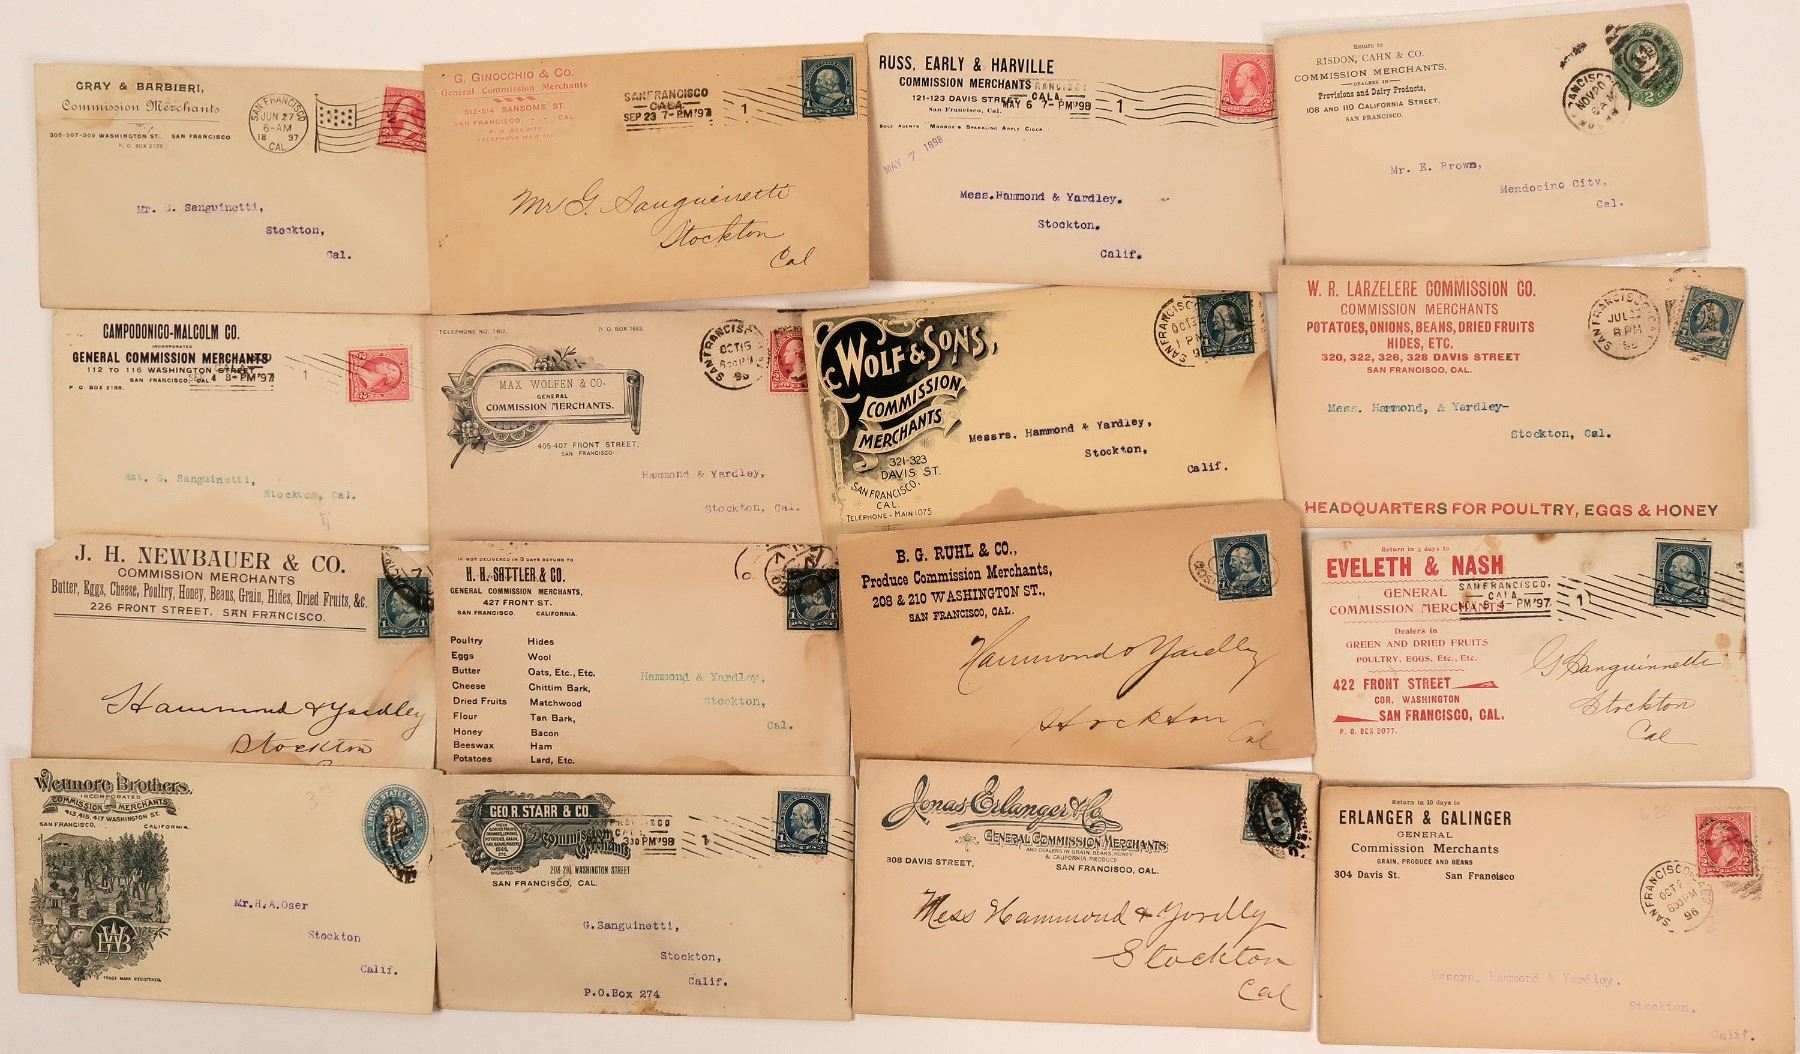 GRAY & BARBIERI,
Commission Merchants
305-307-309 WASHINGTON ST., SAN FRANCISCO
P. O. BOX 2129
SAN FRANCISCO
JUN 27
6-AM
18 97
CAL
Mr. G. Sanguinetti,
Stockton,
Cal.
G. GINOCCHIO & CO.
General Commission Merchants
512-514 SANSOME ST.
SAN FRANCISCO, - - CAL.
P. O. BOX 2173
TELEPHONE MAIN
SANFRANCISCO
CALA
SEP 23 7-PM '97
1
Mr G. Sanguinetti
Stockton
Cal
RUSS, EARLY & HARVILLE
COMMISSION MERCHANTS
121-123 DAVIS STREET
San Francisco, Cal.
SOLE AGENTS "MONROE'S SPARKLING APPLE CIDER"
CALA.
MAY 6 7-PM '98
1
MAY 7 1898
Mess. Hammond & Yardley.
Stockton.
Calif.
Return to
RISDON, CAHN & CO.
COMMISSION MERCHANTS,
DEALERS IN
Provisions and Dairy Products,
108 AND 110 CALIFORNIA STREET,
SAN FRANCISCO.
NOV 20
Mr. E. Brown,
Mendocino City,
Cal.
CAMPODONICO-MALCOLM CO.
INCORPORATED
GENERAL COMMISSION MERCHANTS
112 TO 116 WASHINGTON STREET
SAN FRANCISCO, CAL
P O. BOX 2156.
4 8-PM '97
1
G. Sanguinetti,
Stockton, Cal.
TELEPHONE NO. 1402.
P. O. BOX 1662.
MAX WOLFEN & CO.
GENERAL
COMMISSION MERCHANTS.
405-407 FRONT STREET,
SAN FRANCISCO.
SAN FRANCISCO
OCT 15
630 PM
Hammond & Yardley,
Stockton, Cal.
WOLF & SONS,
COMMISSION
MERCHANTS
321-323
DAVIS ST.
SAN FRANCISCO,
CAL.
TELEPHONE - MAIN 1075.
SAN FRANCISCO
1 PM
Messrs. Hammond & Yardley,
Stockton,
Calif.
W. R. LARZELERE COMMISSION CO.
COMMISSION MERCHANTS
POTATOES, ONIONS, BEANS, DRIED FRUITS
HIDES, ETC.
320, 322, 326, 328 DAVIS STREET
SAN FRANCISCO, CAL.
SAN FRANCISCO
JUL
8 PM
Mess. Hammond, & Yardley-
Stockton, Cal.
HEADQUARTERS FOR POULTRY, EGGS & HONEY
J. H. NEWBAUER & CO.
COMMISSION MERCHANTS
Butter, Eggs, Cheese, Poultry, Honey, Beans, Grain, Hides, Dried Fruits, &c.
226 FRONT STREET, SAN FRANCISCO.
ONE CENT
Hammond & Yardley
Stockton
IF NOT DELIVERED IN 5 DAYS RETURN TO
H. H. SATTLER & CO.
GENERAL COMMISSION MERCHANTS,
427 FRONT ST.
SAN FRANCISCO. CALIFORNIA.
Poultry Hides
Eggs Wool
Butter Oats, Etc., Etc.
Cheese Chittim Bark,
Dried Fruits Matchwood
Flour Tan Bark,
Honey Bacon
Beeswax Ham
Potatoes Lard, Etc.
ONE CENT
Hammond & Yardley,
Stockton,
Cal.
B. G. RUHL & CO.,
Produce Commission Merchants,
208 & 210 WASHINGTON ST.,
SAN FRANCISCO, CAL.
Hammond & Yardley
Stockton
Cal
Return in 5 days to
EVELETH & NASH
GENERAL
COMMISSION MERCHANTS
Dealers in
GREEN AND DRIED FRUITS
POULTRY, EGGS, Etc., Etc.
422 FRONT STREET
COR. WASHINGTON
SAN FRANCISCO, CAL.
P. O. BOX 2077.
SANFRANCISCO,
CALA
4-PM '97
1
G Sanguinnetti
Stockton
Cal
Wetmore Brothers,
INCORPORATED
COMMISSION MERCHANTS
413, 415, 417 WASHINGTON ST.
SAN FRANCISCO, CALIFORNIA.
WB
TRADE MARK REGISTERED.
UNITED STATES
Mr.H.A.Oser
Stockton
Calif.
GEO. R. STARR & CO.
Commission
Merchants
208-210 WASHINGTON STREET
SAN FRANCISCO, CAL.
30 PM '98
1
G.Sanguinetti,
Stockton,
Calif.
P.O.Box 274
Jonas Erlanger & Co.
GENERAL COMMISSION MERCHANTS
AND DEALERS IN GRAIN, BEANS, HONEY
& CALIFORNIA PRODUCE
308 DAVIS STREET,
SAN FRANCISCO, CAL.
Mess Hammond & Yardlly
Stockton
Cal
Return in 10 days to
ERLANGER & GALINGER
GENERAL
Commission Merchants
GRAIN, PRODUCE AND BEANS
304 Davis St. San Francisco
SAN FRANCISCO
OCT
630 PM
96
Messrs. Hammond & Yardley,
Stockton,
Calif.